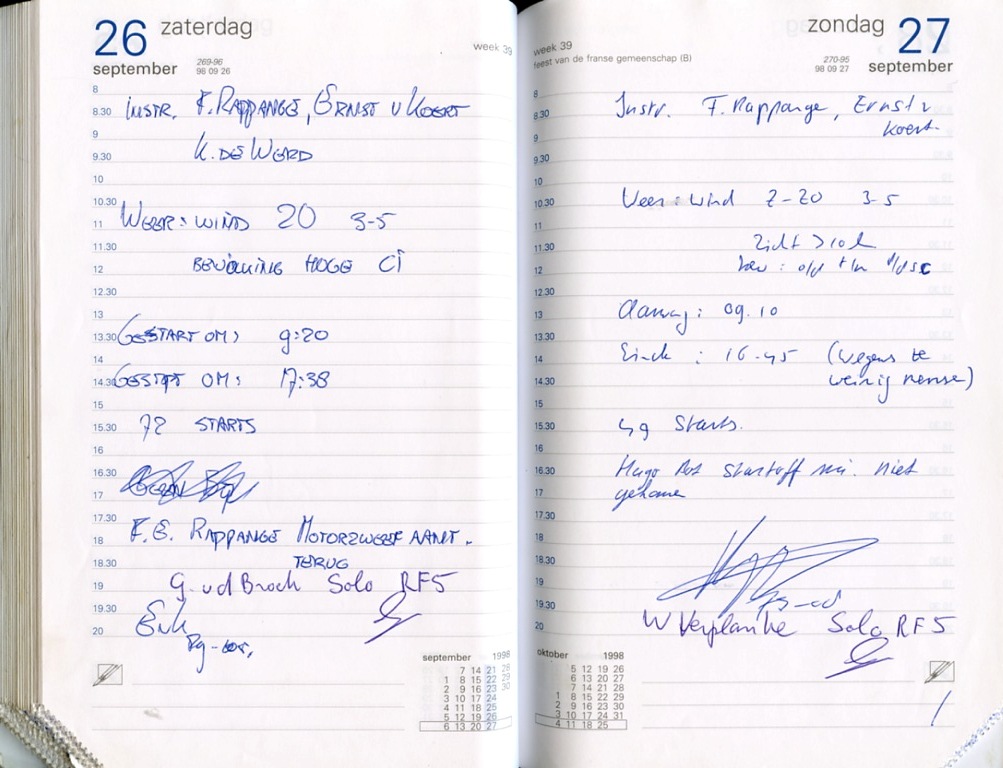 26 zaterdag
september
269-96
98 09 26
week 39
8
8.30 INSTR. F. RAPPANGE, ERNST V KOERT
9
9.30 K. DE WERD
10
10.30
11 WEER: WIND 20 3-5
11.30
12 BEWOLKING HOGE CI
12.30
13
13.30 GESTART OM: 9:20
14
14.30 GESTOPT OM: 17:38
15
15.30 72 STARTS
16
16.30
17
17.30
18 F.E. RAPPANGE MOTORZWEEF AANT.
18.30 TERUG
19 G. vd Broek Solo RF5
19.30
20
september 1998
7 14 21 28
1 8 15 22 29
2 9 16 23 30
3 10 17 24
4 11 18 25
5 12 19 26
6 13 20 27
zondag 27
september
week 39
feest van de franse gemeenschap (B)
270-95
98 09 27
8
8.30 Instr. F. Rappange, Ernst v
9 Koert.
9.30
10
10.30 Weer: wind Z-ZO 3-5
11
11.30 Zicht >10k
12 bew:
12.30
13 Aanvang: 09.10
13.30
14 Einde: 16.45 (wegens te
14.30 weinig mensen)
15
15.30 49 Starts.
16
16.30 Hugo Bot startoff niet
17 gekomen
17.30
18
18.30
19
19.30
20 W Verplanke Solo RF5
oktober 1998
5 12 19 26
6 13 20 27
7 14 21 28
1 8 15 22 29
2 9 16 23 30
3 10 17 24 31
4 11 18 25